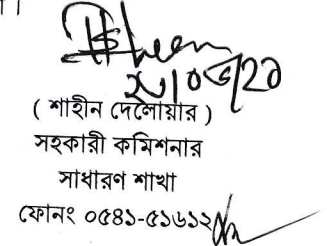 ( শাহীন দেলোয়ার )
সহকারী কমিশনার
সাধারণ শাখা
ফোনং ০৫৪১-৫১৬১২